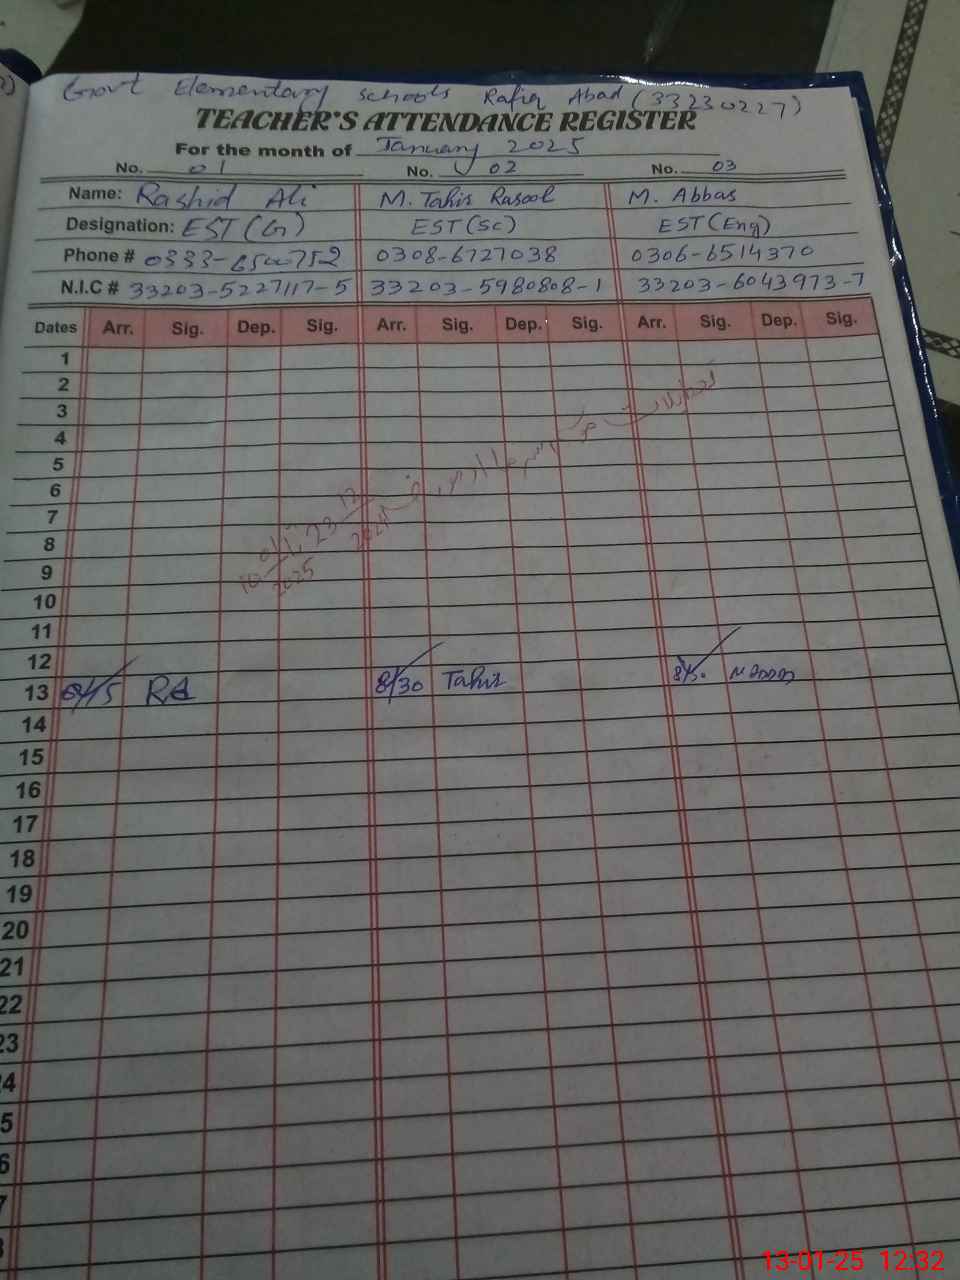 Govt Elementary schools Rafiq Abad (33230227)
TEACHER'S ATTENDANCE REGISTER
For the month of January 2025
No. 01 No. 02 No. 03
Name: Rashid Ali M. Tahir Rasool M. Abbas
Designation: EST (G) EST (Sc) EST (Eng)
Phone # 0333-6500752 0308-6727038 0306-6514370
N.I.C # 33203-5227117-5 33203-5980808-1 33203-6043973-7
Dates Arr. Sig. Dep. Sig. Arr. Sig. Dep. Sig. Arr. Sig. Dep. Sig.
1
2
3
4
5
6
7
8
9
10
11
12
13 RA 8/30 Tahir
14
15
16
17
18
19
20
21
22
23
تعطیلات موسم سرما از مورخہ 23 12/2024 تا 10 01/2025
13-01-25 12:32